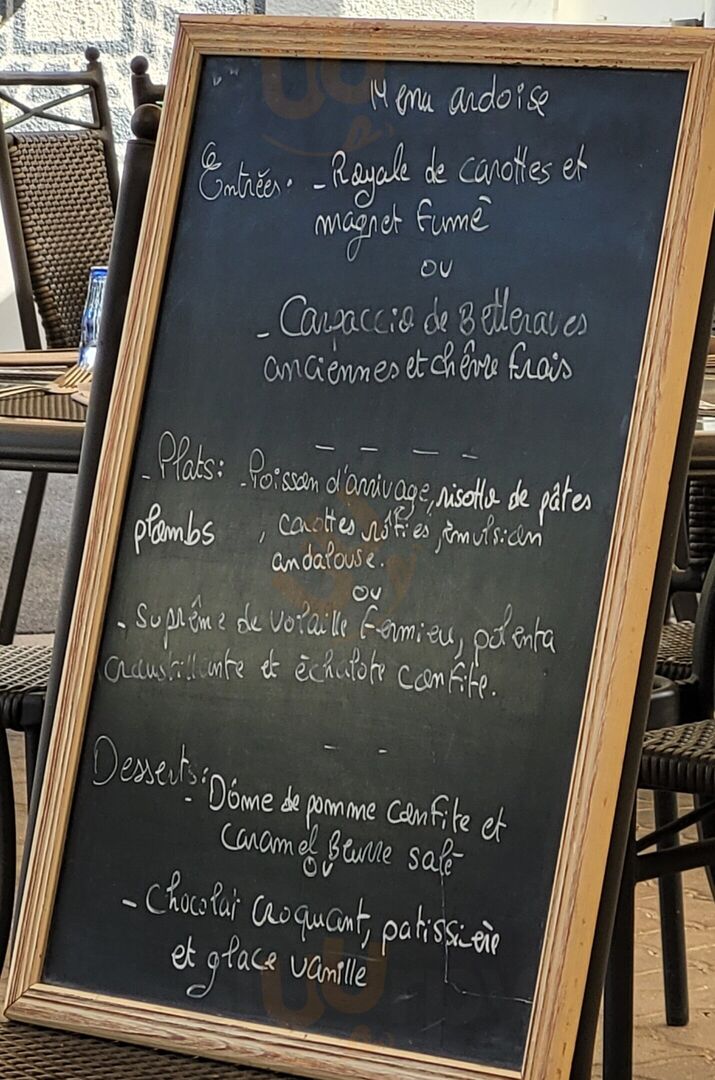 Menu ardoise
Entrées. - Royale de carottes et
magret fumé
ou
- Carpaccio de Betteraves
anciennes et chèvre frais
- Plats: - Poisson d'arrivage, risotto de pâtes
plombs , carottes rôties, émulsion
andalouse.
ou
- Suprême de volaille fermier, polenta
croustillante et échalote confite.
Desserts:
- Dôme de pomme confite et
caramel Beurre salé
ou
- Chocolat croquant, patissière
et glace vanille